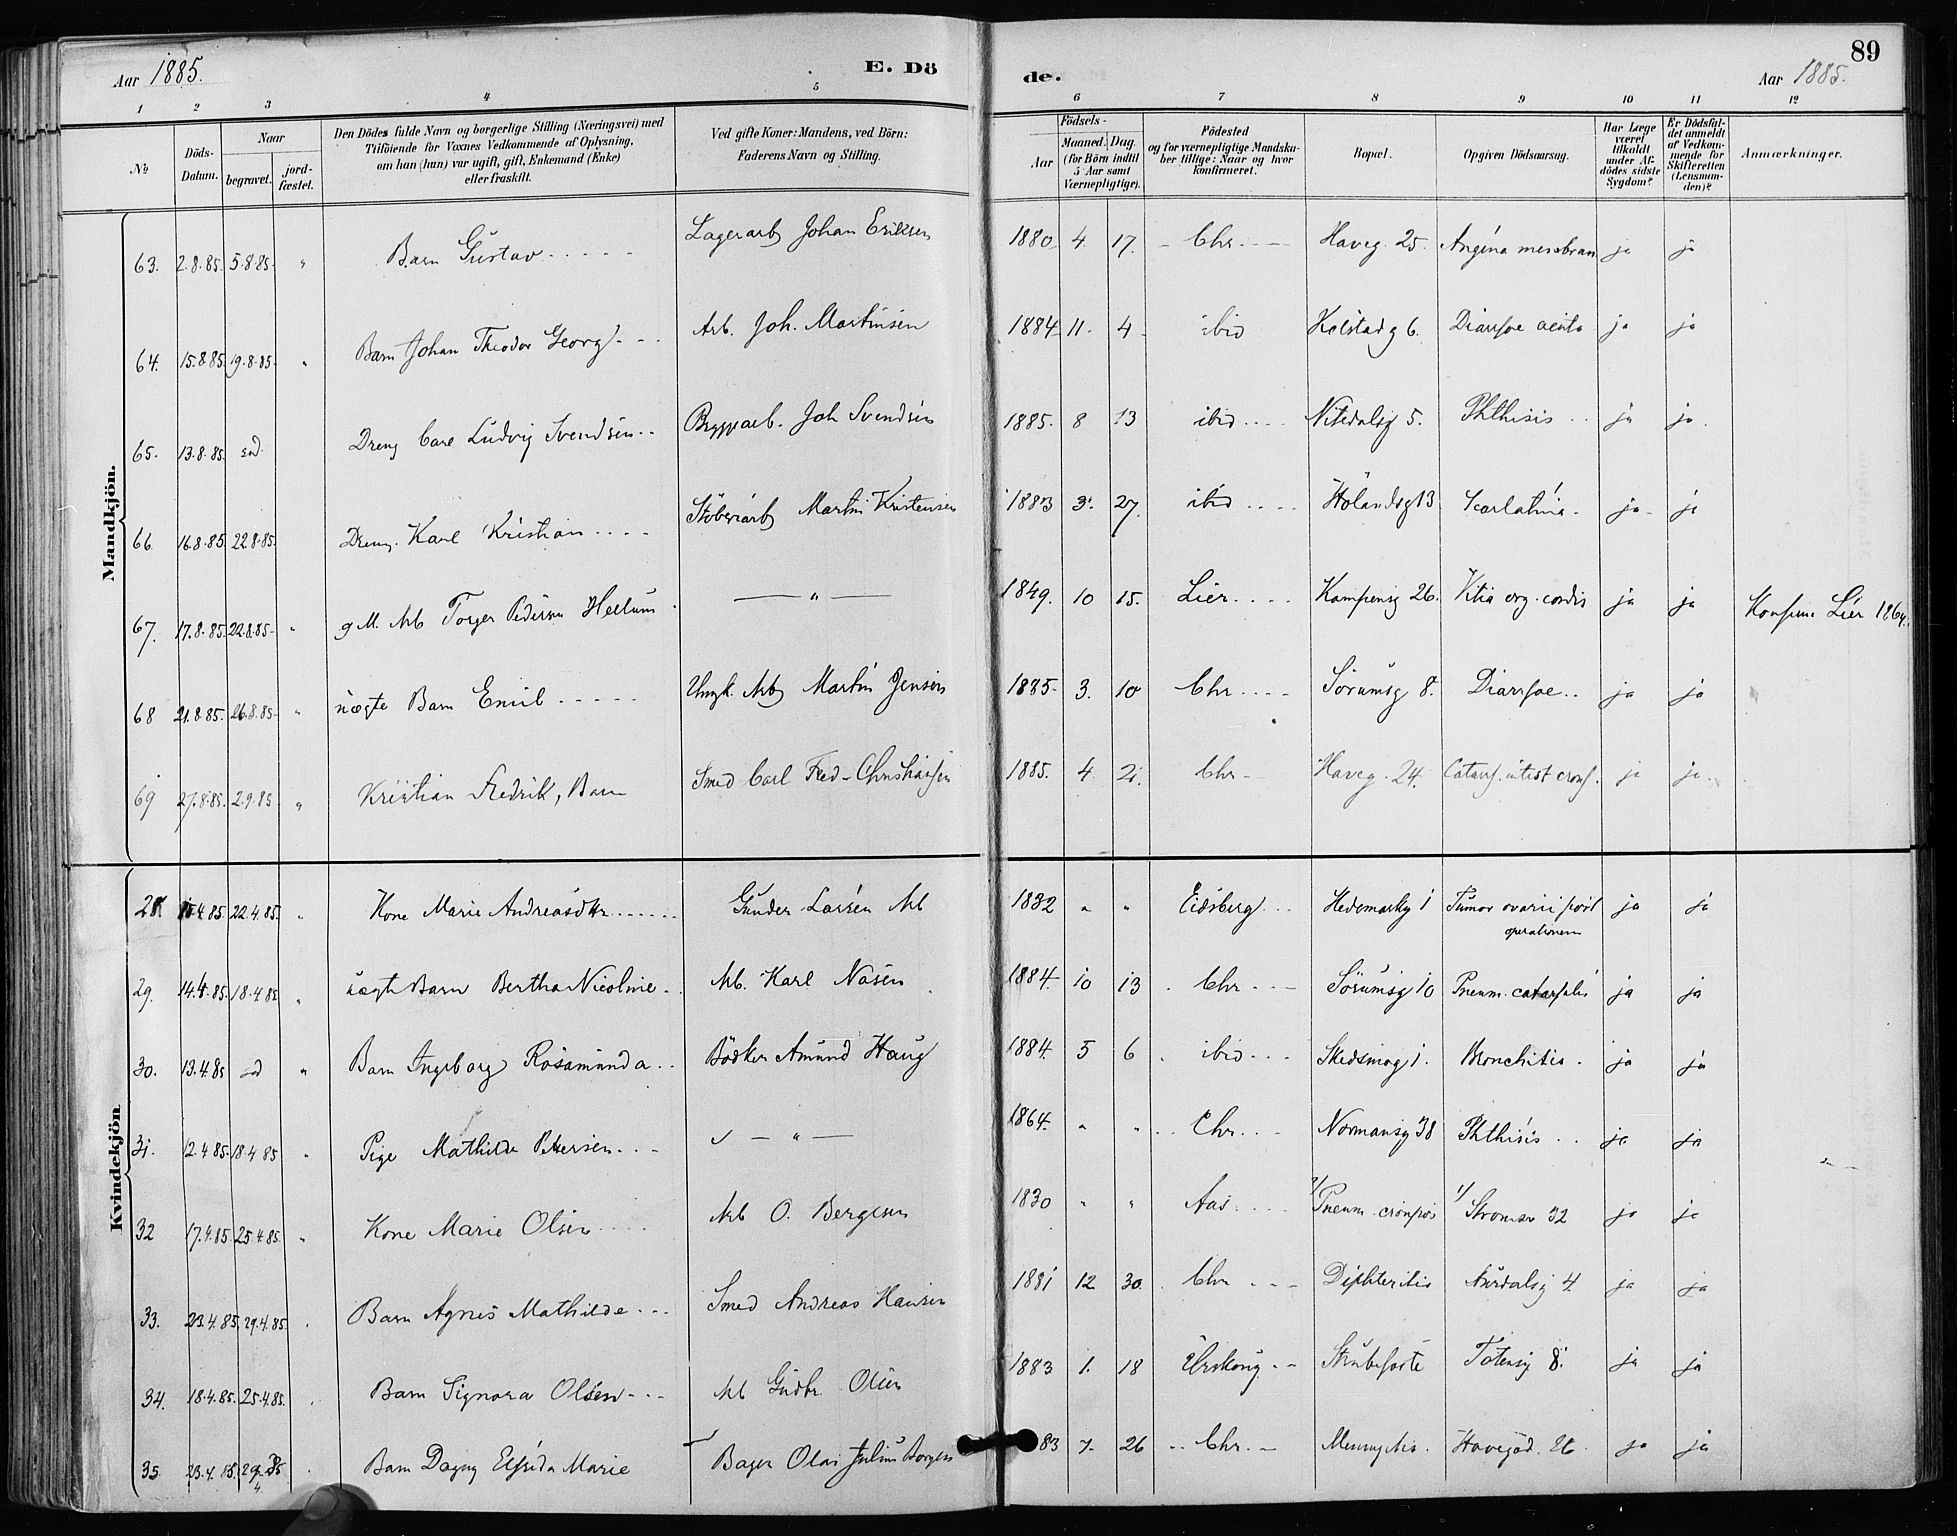 89
Aar 1885.
E. Dö
de.
Aar 1885.
1 2 3 4 5 6 7 8 9 10 11 12
№
Döds-
Datum.
Naar
begravet.
jord-
fæstet.
Den Dödes fulde Navn og borgerlige Stilling (Næringsvei) med
Tilföiende for Voxnes Vedkommende af Oplysning,
om han (hun) var ugift, gift, Enkemand (Enke)
eller fraskilt.
Ved gifte Koner: Mandens, ved Börn:
Faderens Navn og Stilling.
Födsels-
Aar
Maaned.
Dag.
(for Börn indtil
5 Aar samt
Værnepligtige).
Födested
og for værnepligtige Mandska-
ber tillige: Naar og hvor
konfirmeret.
Bopæl.
Opgiven Dödsaarsag.
Har Læge
været
tilkaldt
under Af-
dödes sidste
Sygdom?
Er Dödsfal-
det anmeldt
af Vedkom-
mende for
Skifteretten
(Lensman-
den)?
Anmærkninger.
Mandkjön.
63. 2.8.85. 5.8.85. " Barn Gustav Lagerarb Johan Eriksen 1880 4. 17. Chr. Haveg. 25. Angina membran ja ja
64. 15.8.85. 19.8.85. " Barn Johan Theodor Georg Arb. Joh. Martinsen 1884 11. 4 ibid Kolstadg 6. Diarrhoe acuta ja ja
65. 13.8.85. Dreng Carl Ludvig Svendsen Bryggearb. Joh Svendsen 1885. 8 13 ibid Nitedalsg 5. Phthisis ja ja
66. 16.8.85 22.8.85. Dreng Karl Kristian Martin Kristensen 1883 3. 27. ibid Hölandsg 13 Scarlatina ja ja
67. 17.8.85. 22.8.85. " g M. Arb Torger Pedersen Hellum — " — 1849. 10 15. Lier Kampensg 26. Vitia org. cordis ja ja Konfirm. Lier 1864.
68 21.8.85. 26.8.85. " uægte Barn Emil Ungk. Arb Martin Jensen 1885 3. 10 Chr Sörumsg 8. Diarrhoe ja ja
69 27.8.85. 2.9.85 " Kristian Fredrik, Barn Smed Carl Fred. Christiansen 1885. 4 21. Chr Haveg. 24. Catarrh. intest cron. ja ja
Kvindekjön
28 22.4.85. " Kone Marie Andreasdtr Gunder Larsen Arb 1832 " " Eidsberg Hedemarkg 1 Tumor ovarii post
operationem ja ja
29. 14.4.85. 18.4.85 " uægte Barn Bertha Nicoline Arb. Karl Nasen 1884 10 13 Chr Sörumsg 10 Pneum. catarrhalis ja ja
30. 13.4.85 " Barn Ingeborg Rosamunda Bödker Amund Haug 1884. 5 6 ibid Skedsmog 1. Bronchitis ja ja
31. 12.4.85. 18.4.85 " Pige Mathilde Petersen — " — 1864. " " Chr. Normansg 38 Phthisis ja ja
32 17.4.85. 25.4.85. " Kone Marie Olsen Arb O. Bergesen 1830 " " Aas Pneum. croupös 32 ja ja
33. 23.4.85. 29.4.85. Barn Agnes Mathilde Smed Andreas Hansen 1881 12 30. Chr Diphteritis Aurdalsg 4. ja ja
34. 18.4.85. 25.4.85. Barn Signora Olsen Arb Gudbr. Olsen 1883 1. 18 Urskoug Strubehoste Totensg 8. ja ja
35. 23.4.85. Barn Dagny Elfrida Marie Bager Olai Julius Borgen 83 7. 26 Chr. Meningitis. 26 ja ja